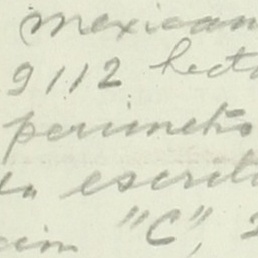 mexican
9112 hect
perimetro
da escrit
cion "C", 2